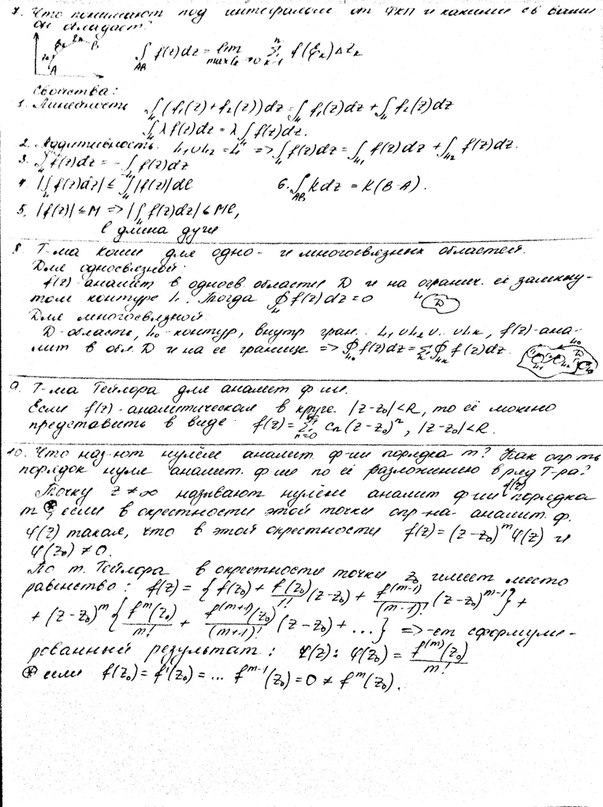 7. Что понимают под интегралом от ФКП и какими св-вами
он обладает?
∫_{AB} f(z)dz = lim_{max l_k→0} Σ_{k=1}^{n} f(ξ_k)Δz_k
Свойства:
1. Линейность ∫_L (f₁(z)+f₂(z))dz = ∫_L f₁(z)dz + ∫_L f₂(z)dz
∫_L λf(z)dz = λ∫_L f(z)dz.
2. Аддитивность L₁∪L₂ = L => ∫_L f(z)dz = ∫_{L1} f(z)dz + ∫_{L2} f(z)dz.
3. ∫ f(z)dz = -∫ f(z)dz
4. |∫_L f(z)dz| ≤ ∫_L |f(z)|dl 6. ∫_{AB} k dz = k(B-A).
5. |f(z)| ≤ M => |∫_L f(z)dz| ≤ Ml,
l длина дуги
8. Т-ма Коши для одно- и многосвязных областей.
Для односвязной:
f(z)-аналит в односв области D и на огранич. её замкну-
том контуре L. Тогда ∮_L f(z)dz = 0 L D
Для многосвязной
D-область, L₀-контур, внутр гран. L₁∪L₂∪. ∪L_k, f(z)-ана-
лит в обл. D и на ее границе => ∮_{L0} f(z)dz = Σ_k ∮_{Lk} f(z)dz.
9. Т-ма Тейлора для аналит ф-ии.
Если f(z)-аналитическая в круге |z-z₀|<R, то её можно
представить в виде f(z) = Σ_{n=0}^{∞} c_n(z-z₀)ⁿ, |z-z₀|<R.
10. Что наз-ют нулём аналит ф-ии порядка m? Как опр-ть
порядок нуля аналит. ф-ии по её разложению в ряд Т-ра?
Точку z ≠ ∞ называют нулём аналит ф-ии f(z) порядка
m ⊛, если в окрестности этой точки опр-на аналит ф.
φ(z) такая, что в этой окрестности f(z) = (z-z₀)^m φ(z) и
φ(z₀) ≠ 0.
По т. Тейлора в окрестности точки z₀ имеет место
равенство: f(z) = {f(z₀) + f'(z₀)/1! (z-z₀) + f^{(m-1)}/(m-1)! (z-z₀)^{m-1}} +
+ (z-z₀)^m {f^m(z₀)/m! + f^{(m+1)}(z₀)/(m+1)! (z-z₀) + ...} => -ет сформули-
рованный результат: φ(z): φ(z₀) = f^{(m)}(z₀)/m!
⊛ если f(z₀) = f'(z₀) = ... f^{m-1}(z₀) = 0 ≠ f^m(z₀).